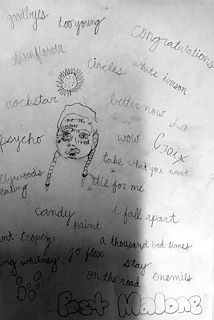 goodbyes
too young
Congratulations
sunflower
circles
white iverson
rockstar
better now
La
psycho
wow
Croix
take what you want
llywoods
eating
die for me
candy
i fall apart
paint
int-tropez
a thousand bad times
ng whitney
go flex
stay
on the road
enemies
Post Malone